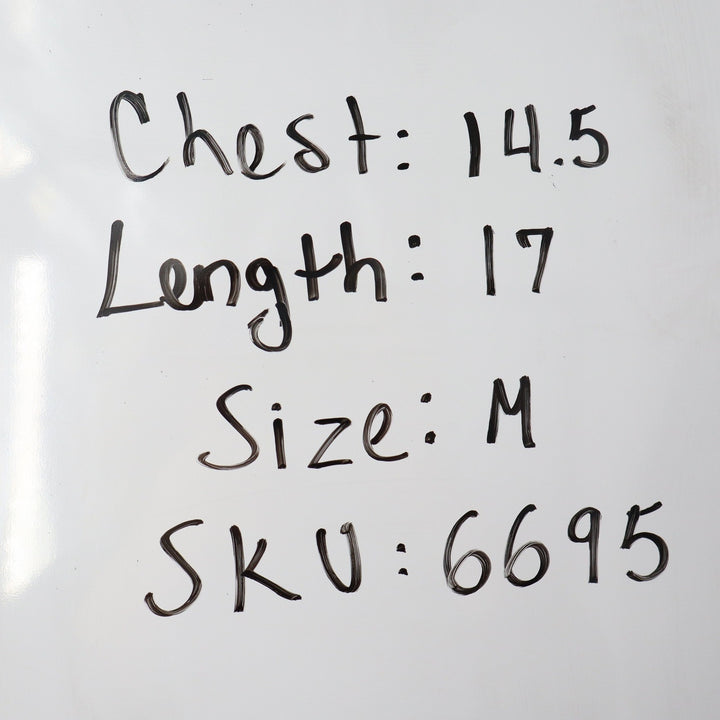 Chest: 14.5
Length: 17
Size: M
SKU: 6695